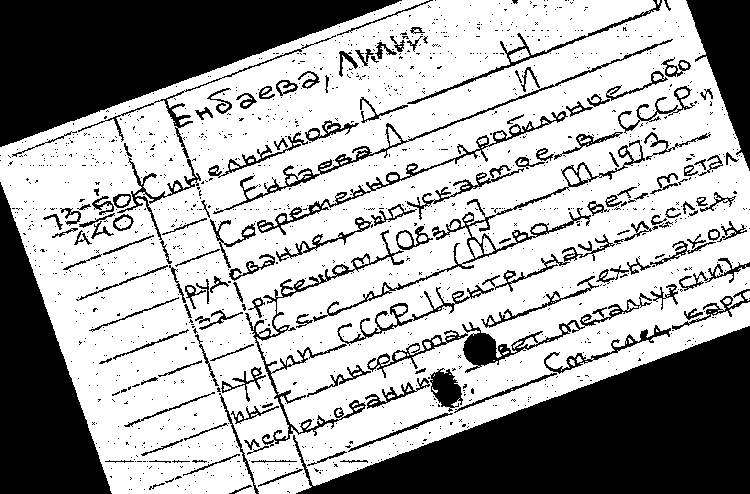 Енбаева, Лилия
Синельников, Л Н
Енбаева Л И
73-50к
440
Современное дробильное обо-
рудование, выпускаемое в СССР и
за рубежом. [Обзор] М, 1973
66 с. с ил. (М-во цвет метал-
лургии СССР. Центр. науч-исслед.
ин-т информации и техн-экон.
исследований цвет металлургии)
См. след. карт